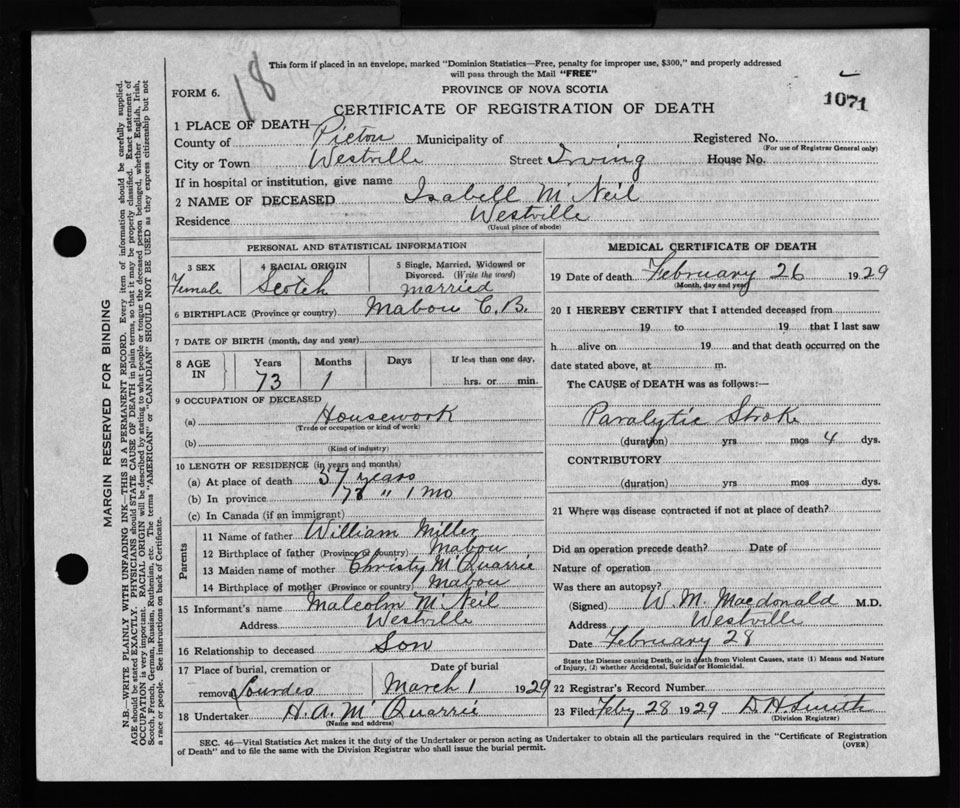 18
This form if placed in an envelope, marked "Dominion Statistics—Free, penalty for improper use, $300," and properly addressed
will pass through the Mail "FREE"
FORM 6.
PROVINCE OF NOVA SCOTIA
1071
CERTIFICATE OF REGISTRATION OF DEATH
1 PLACE OF DEATH—
County of Pictou Municipality of Registered No.
(For use of Registrar General only)
City or Town Westville Street Irving House No.
If in hospital or institution, give name
2 NAME OF DECEASED Isabell McNeil
Residence Westville
(Usual place of abode)
PERSONAL AND STATISTICAL INFORMATION
3 SEX 4 RACIAL ORIGIN 5 Single, Married, Widowed or
Divorced. (Write the word)
Female Scotch married
6 BIRTHPLACE (Province or country) Mabou C.B.
7 DATE OF BIRTH (month, day and year)
8 AGE IN Years Months Days If less than one day.
73 1 hrs. or min.
9 OCCUPATION OF DECEASED
(a) Housework
(Trade or occupation or kind of work)
(b)
(Kind of industry)
10 LENGTH OF RESIDENCE (in years and months)
(a) At place of death 37 years
(b) In province 73 " 1 mo
(c) In Canada (if an immigrant)
Parents
11 Name of father William Miller
12 Birthplace of father (Province or country) Mabou
13 Maiden name of mother Christy McQuarrie
14 Birthplace of mother (Province or country) Mabou
15 Informant's name Malcolm McNeil
Address Westville
16 Relationship to deceased Son
17 Place of burial, cremation or Date of burial
removal Lourdes March 1 1929
18 Undertaker H. A. McQuarrie
(Name and address)
MEDICAL CERTIFICATE OF DEATH
19 Date of death February 26 1929
(Month, day and year)
20 I HEREBY CERTIFY that I attended deceased from
19 to 19 that I last saw
h alive on 19 and that death occurred on the
date stated above, at m.
The CAUSE of DEATH was as follows:—
Paralytic Stroke
(duration) yrs mos 4 dys.
CONTRIBUTORY
(duration) yrs mos dys.
21 Where was disease contracted if not at place of death?
Did an operation precede death? Date of
Nature of operation
Was there an autopsy?
(Signed) W. M. Macdonald M.D.
Address Westville
Date February 28
State the Disease causing Death, or in death from Violent Causes, state (1) Means and Nature
of Injury, (2) whether Accidental, Suicidal or Homicidal.
22 Registrar's Record Number
23 Filed Feby 28 1929 D H Smith
(Division Registrar)
SEC. 46—Vital Statistics Act makes it the duty of the Undertaker or person acting as Undertaker to obtain all the particulars required in the "Certificate of Registration
of Death" and to file the same with the Division Registrar who shall issue the burial permit.
(OVER)
MARGIN RESERVED FOR BINDING
N.B.—WRITE PLAINLY WITH UNFADING INK—THIS IS A PERMANENT RECORD. Every item of information should be carefully supplied.
AGE should be stated EXACTLY. PHYSICIANS should STATE CAUSE OF DEATH in plain terms, so that it may be properly classified. Exact statement of
OCCUPATION is very important. RACIAL ORIGIN will be described by stating to what people or tongue the deceased person belonged, whether English, Irish,
Scotch, French, German, Russian, Ruthenian, etc. The terms "AMERICAN" or "CANADIAN" SHOULD NOT BE USED as they express citizenship but not
a race or people. See instructions on back of Certificate.